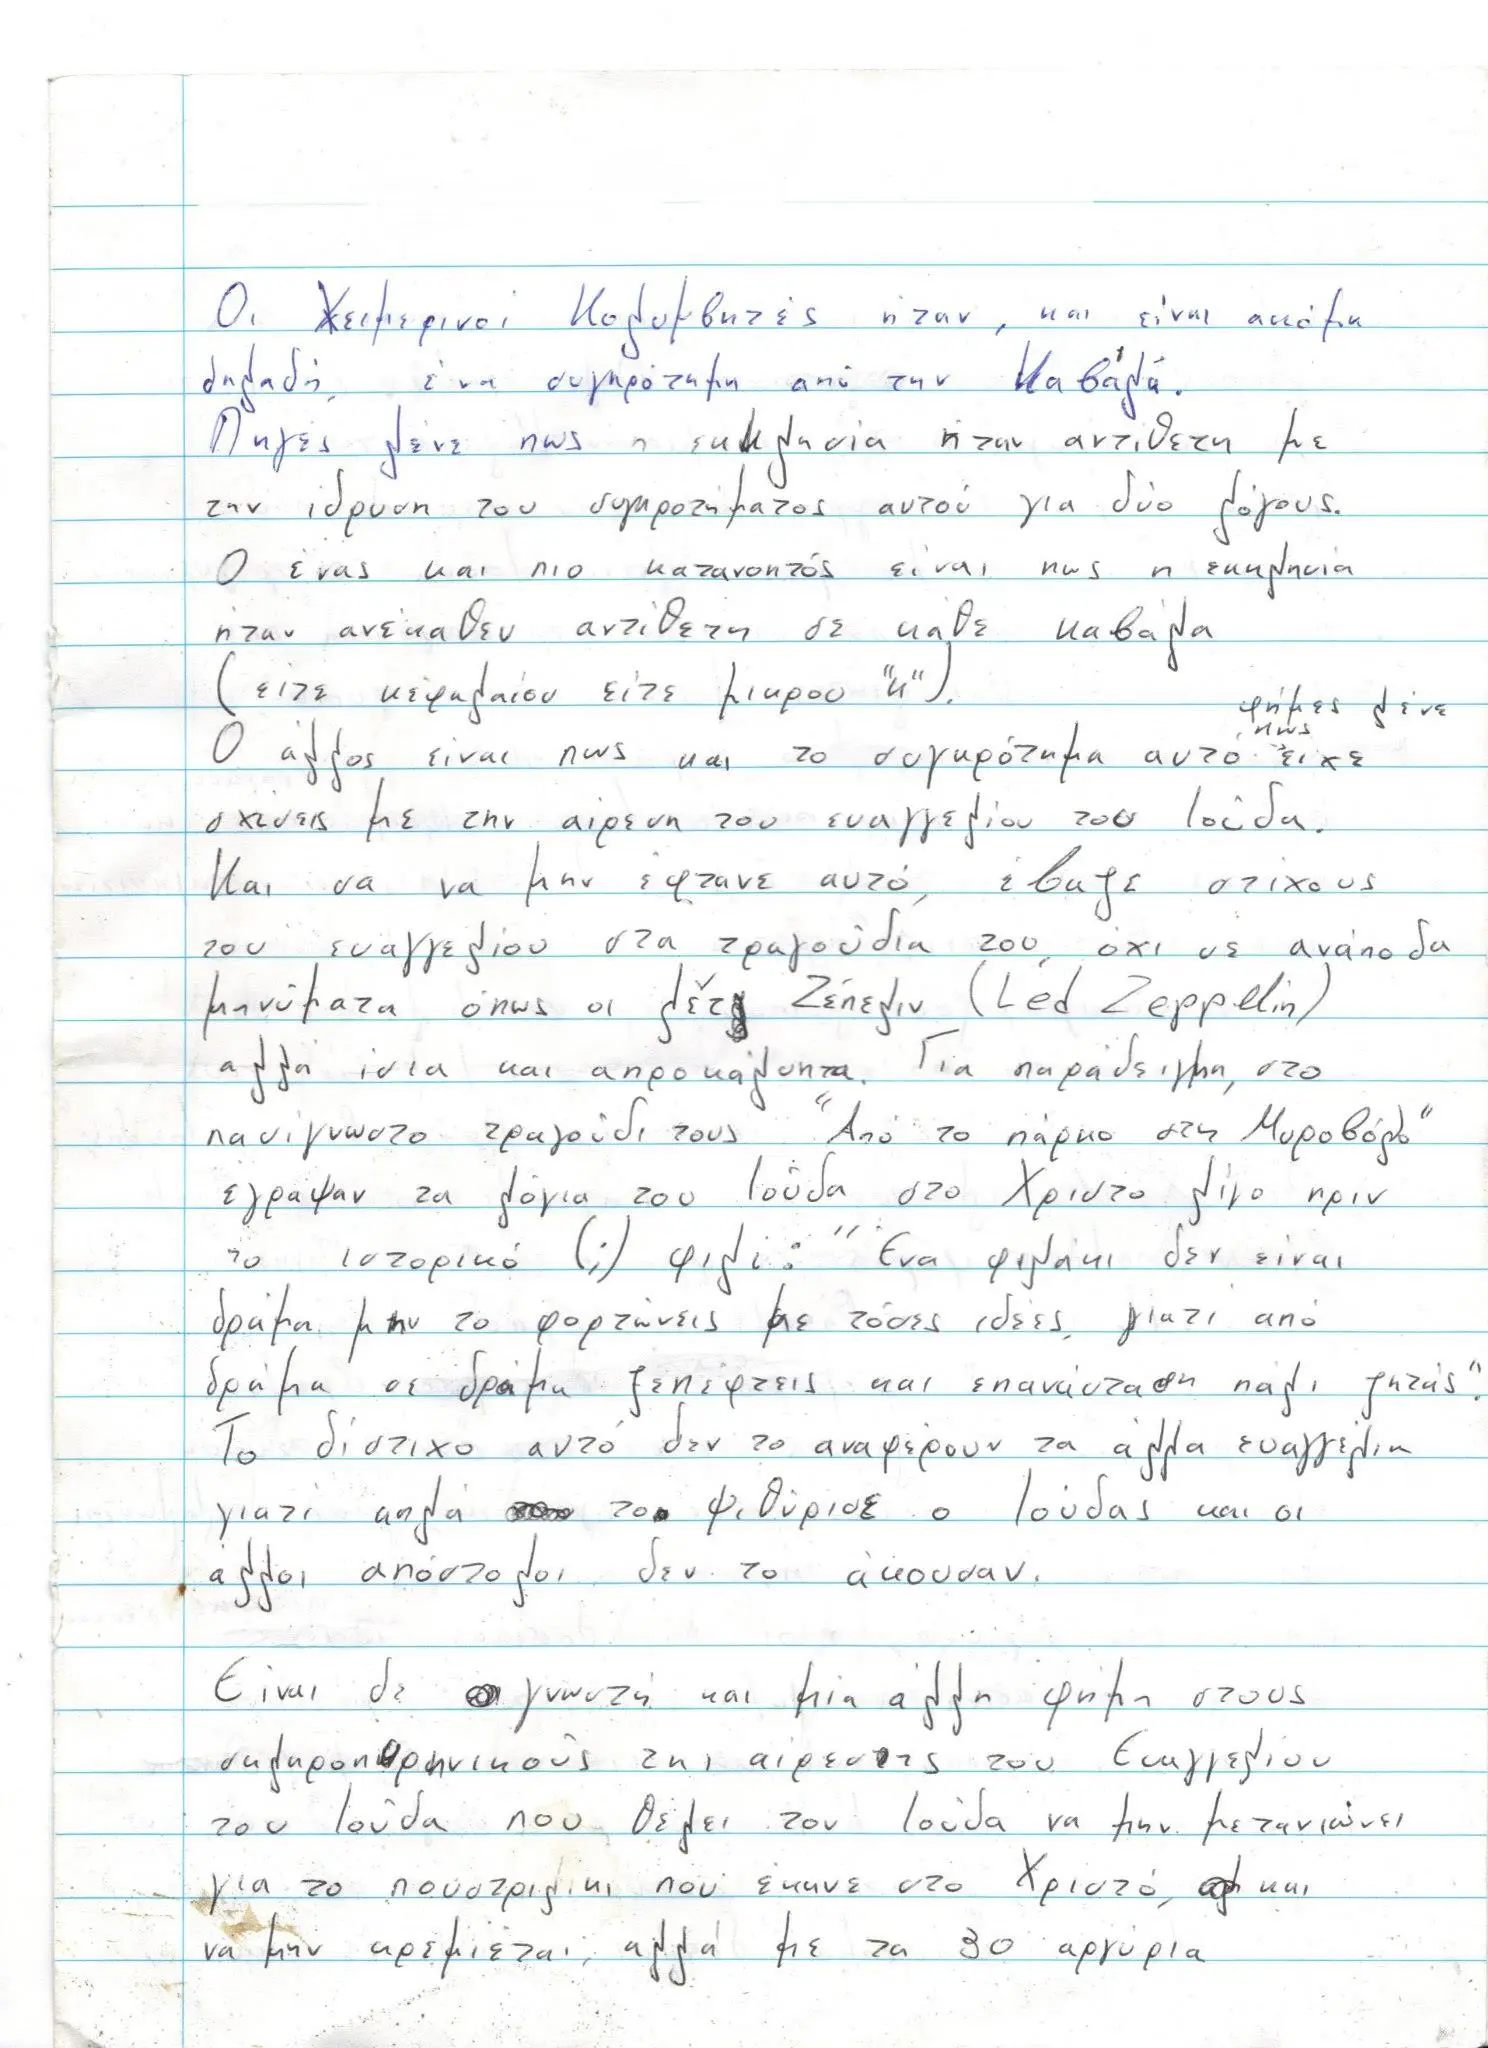 Οι Χειμερινοί Κολυμβητές ήταν, και είναι ακόμα
δηλαδή, ένα συγκρότημα από την Καβάλα.
Πηγές λένε πως η εκκλησία ήταν αντίθετη με
την ίδρυση του συγκροτήματος αυτού για δύο λόγους.
Ο ένας και πιο κατανοητός είναι πως η εκκλησία
ήταν ανέκαθεν αντίθετη σε κάθε καβάλα
(είτε κεφαλαίου είτε μικρου "κ").
φήμες λένε
πως
Ο άλλος είναι πως και το συγκρότημα αυτό είχε
σχέσεις με την αίρεση του ευαγγελίου του Ιούδα.
Και σα να μην έφτανε αυτό, έβαζε στίχους
του ευαγγελίου στα τραγούδια του, όχι σε ανάποδα
μηνύματα όπως οι Λέτ Ζέπελιν (Led Zeppelin)
αλλά ίσια και απροκάλυπτα. Για παράδειγμα, στο
πασίγνωστο τραγούδι τους "Από το πάρκο στη Μυροβόλο"
έγραψαν τα λόγια του Ιούδα στο Χριστο λίγο πριν
το ιστορικό (;) φιλί: "Ένα φιλάκι δεν είναι
δράμα μην το φορτώνεις με τόσες ιδέες, γιατί από
δράμα σε δράμα ξεπέφτεις και επανάσταση πάλι ζητάς".
Το δίστιχο αυτό δεν το αναφέρουν τα άλλα ευαγγέλια
γιατί απλά το ψιθύρισε ο Ιούδας και οι
άλλοι απόστολοι δεν το άκουσαν.
Είναι δε γνωστή και μία άλλη φήμη στους
σκληροπυρηνικούς της αίρεσης του Ευαγγελίου
του Ιούδα που θέλει τον Ιούδα να μην μετανιώνει
για το πουστριλίκι που έκανε στο Χριστό, και
να μην κρεμιέται, αλλά με τα 30 αργύρια